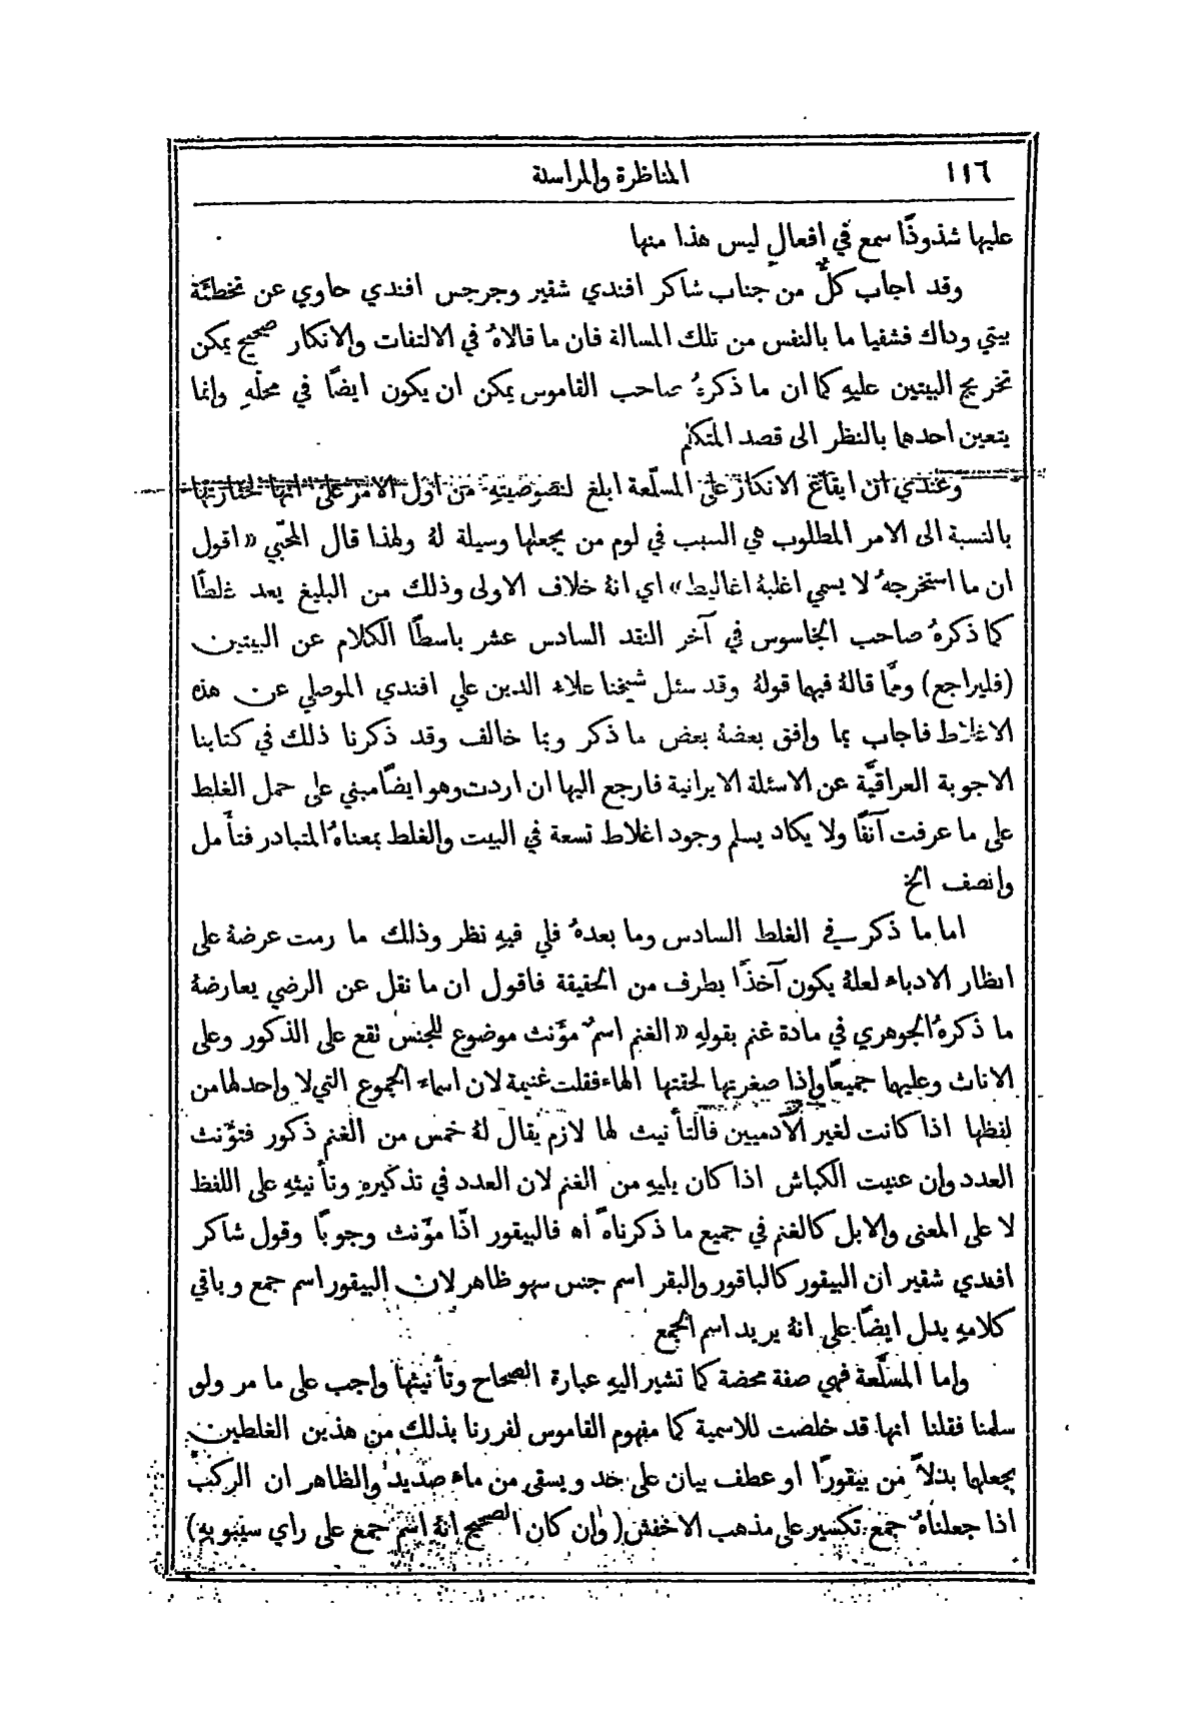 ١١٦ المناظرة والمراسلة
عليها شذوذًا سمع في افعالٍ ليس هذا منها
وقد اجاب كلٌّ من جناب شاكر افندي شقير وجرجس افندي حاوي عن تخطئَة
بيتي وداك فشفيا ما بالنفس من تلك المسالة فان ما قالاهُ في الالتفات والانكار صحيح يمكن
تخريج البيتين عليهِ كما ان ما ذكرهُ صاحب القاموس يمكن ان يكون ايضًا في محلّهِ وانما
يتعين احدهما بالنظر الى قصد المتكلم
وعندي ان ايقاع الانكار على المسلّعة ابلغ لنصوصيتهِ من اول الامر على انها لحقارتها
بالنسبة الى الامر المطلوب هي السبب في لوم من يجعلها وسيلة لهُ ولهذا قال المحبّي «اقول
ان ما استخرجهُ لا يسمي اغلبهُ اغاليط» اي انهُ خلاف الاولى وذلك من البليغ يعد غلطًا
كما ذكرهُ صاحب الجاسوس في آخر النقد السادس عشر باسطًا الكلام عن البيتين
(فليراجع) وممَّا قالهُ فيهما قولهُ وقد سئل شيخنا علاء الدين علي افندي الموصلي عن هذه
الاغلاط فاجاب بما وافق بعضهُ بعض ما ذكر وبما خالف وقد ذكرنا ذلك في كتابنا
الاجوبة العراقيَّة عن الاسئلة الايرانية فارجع اليها ان اردت وهو ايضًا مبني على حمل الغلط
على ما عرفت آنفًا ولا يكاد يسلم وجود اغلاط تسعة في البيت والغلط بمعناهُ المتبادر فتأمل
وانصف الخ
اما ما ذكر في الغلط السادس وما بعدهُ فلي فيهِ نظر وذلك ما رمت عرضهُ على
انظار الادباء لعلهُ يكون آخذًا بطرف من الحقيقة فاقول ان ما نقل عن الرضي يعارضهُ
ما ذكرهُ الجوهري في مادة غنم بقولهِ «الغنم اسمٌ مؤَنث موضوع للجنس نقع على الذكور وعلى
الاناث وعليها جميعًا وإذا صغرتها لحقتها الهاء فقلت غنيمة لان اسماء الجموع التي لا واحد لها من
لفظها اذا كانت لغير الآدميين فالتأنيث لها لازم يقال لهُ خمس من الغنم ذكور فتؤنث
العدد وإن عنيت الكباش اذا كان يليهِ من الغنم لان العدد في تذكيرهِ وتأنيثهِ على اللفظ
لا على المعنى والابل كالغنم في جميع ما ذكرناهُ اه فالبيقور اذًا مؤَنث وجوبًا وقول شاكر
افندي شقير ان البيقور كالباقور والبقر اسم جنس سهو ظاهر لان البيقور اسم جمع وباقي
كلامهِ يدل ايضًا على انهُ يريد اسم الجمع
واما المسلَّعة فهي صفة محضة كما تشير اليهِ عبارة الصحاح وتأنيثها واجب على ما مر ولو
سلمنا فقلنا انها قد خلصت للاسمية كما مفهوم القاموس لفررنا بذلك من هذين الغلطين
بجعلها بدلاً من بيقورًا او عطف بيان على حد ويسقى من ماء صديد والظاهر ان الركب
اذا جعلناهُ جمع تكسير على مذهب الاخفش (وإن كان الصحيح انهُ اسم جمع على راي سيبويهِ)